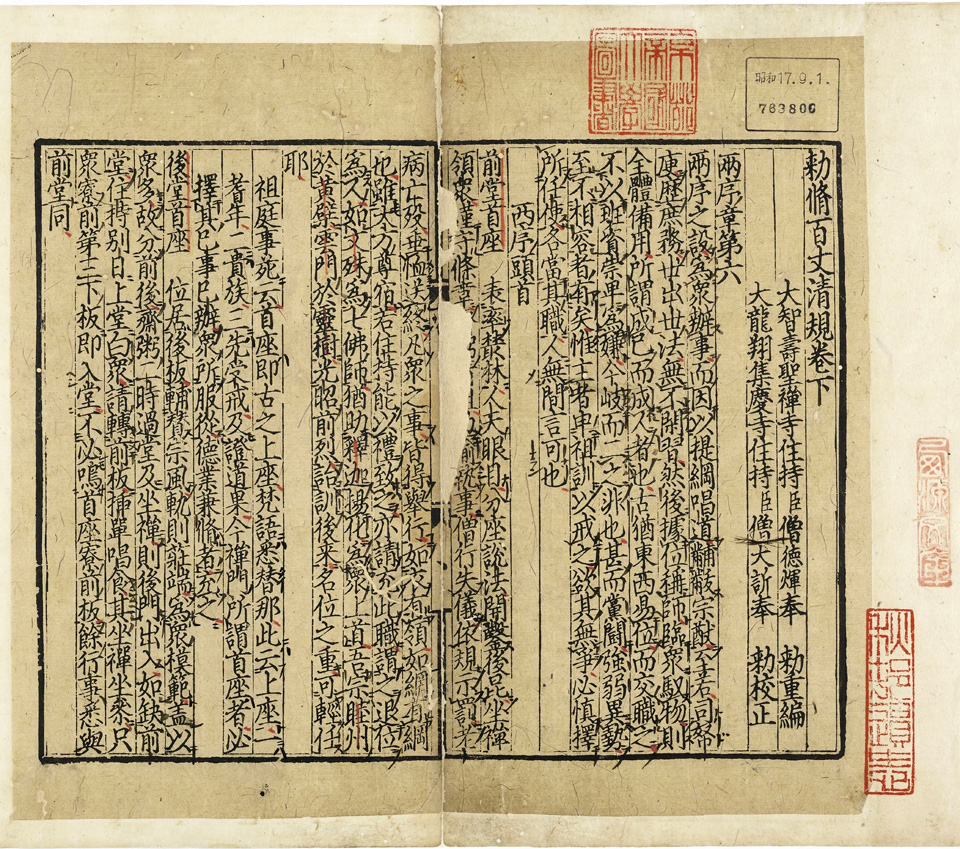 昭和17.9.1.
763800
京都
帝國
大學
圖書
勅脩百丈清規卷下
大智壽聖禪寺住持臣僧德煇奉 勅重編
大龍翔集慶寺住持臣僧大訢奉 勅校正
兩序章第六
兩序之設為眾辦事而因以提綱唱道黼黻宗猷至若司帑
庾歷庶務世出世法無不閑習然後據位稱師臨眾馭物則
全體備用所謂成己而成人者也古猶東西易位而交職之
不以班資崇卑為嫌今岐而二之非也甚而黨鬪強弱異勢
至不相容者有矣惟主者申祖訓以戒之欲其無爭必慎擇
所任使各當其職人無間言可也
西序頭首
前堂首座 表率叢林人天眼目分座說法開鑿後昆坐禪
領眾謹守條章 執事僧行失儀依規示罰老
病亡歿垂恤送終凡眾之事皆得舉行如衣有領如網有綱
也雖大方尊宿若住持能以禮致之亦請充此職謂之退位
為人如文殊為七佛師猶助釋迦揚化為眾上首吾宗睦州
於黃蘗雲門於靈樹光昭前烈詒訓後來名位之重可輕任
耶
祖庭事苑云首座即古之上座梵語悉替那此云上座三
耆年二貴族三先受戒及證道果今禪門所謂首座者必
擇其己事已辦眾所服從德業兼脩者充之
後堂首座 位居後板輔贊宗風軌則莊端為眾模範蓋以
眾多故分前後齋粥二時過堂及坐禪則後門出入如缺前
堂住持別日上堂白眾請轉前板插單唱食其坐禪坐參只
眾寮前第三下板即入堂不必鳴首座寮前板餘行事悉與
前堂同